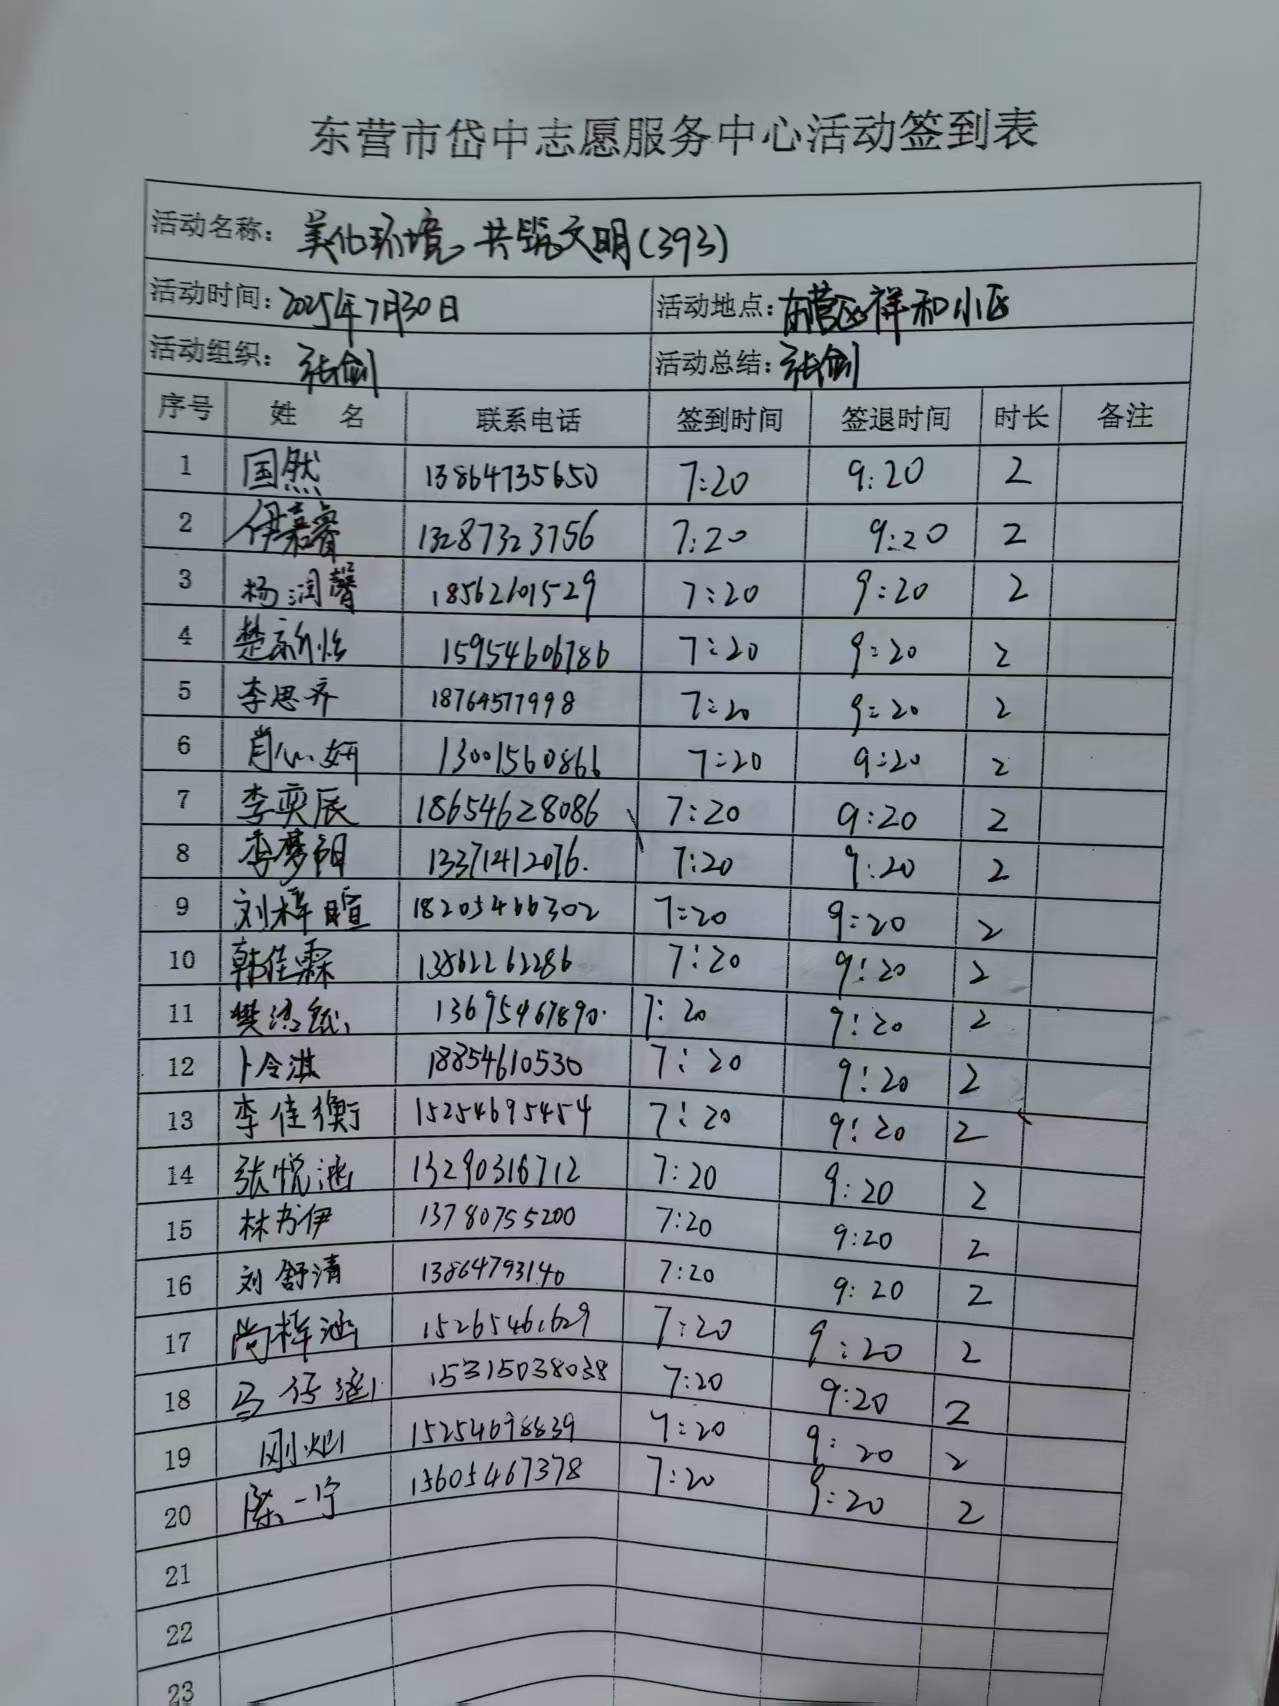 东营市岱中志愿服务中心活动签到表
活动名称: 美化环境 共筑文明(393)
活动时间: 2025年7月30日 活动地点: 东营区祥和小区
活动组织: 张剑 活动总结: 张剑
序号 姓 名 联系电话 签到时间 签退时间 时长 备注
1 国然 13864735650 7:20 9:20 2
2 伊嘉睿 13287323756 7:20 9:20 2
3 杨润馨 18562601529 7:20 9:20 2
4 楚新怡 15954606786 7:20 9:20 2
5 李思齐 18764577998 7:20 9:20 2
6 肖心妍 13001560866 7:20 9:20 2
7 李奕辰 18654628086 7:20 9:20 2
8 李梦阳 13371412076. 7:20 9:20 2
9 刘梓暄 18205466302 7:20 9:20 2
10 韩佳霖 13562262286 7:20 9:20 2
11 樊 13695467890. 7:20 9:20 2
12 卜令淇 18854610530 7:20 9:20 2
13 李佳衡 15254695454 7:20 9:20 2
14 张悦涵 13290316712 7:20 9:20 2
15 林书伊 13780755200 7:20 9:20 2
16 刘舒清 13864793140 7:20 9:20 2
17 尚梓涵 15265461629 7:20 9:20 2
18 马 15315038038 7:20 9:20 2
19 刚灿 15254678839 7:20 9:20 2
20 陈一宁 15605467378 7:20 9:20 2
21
22
23